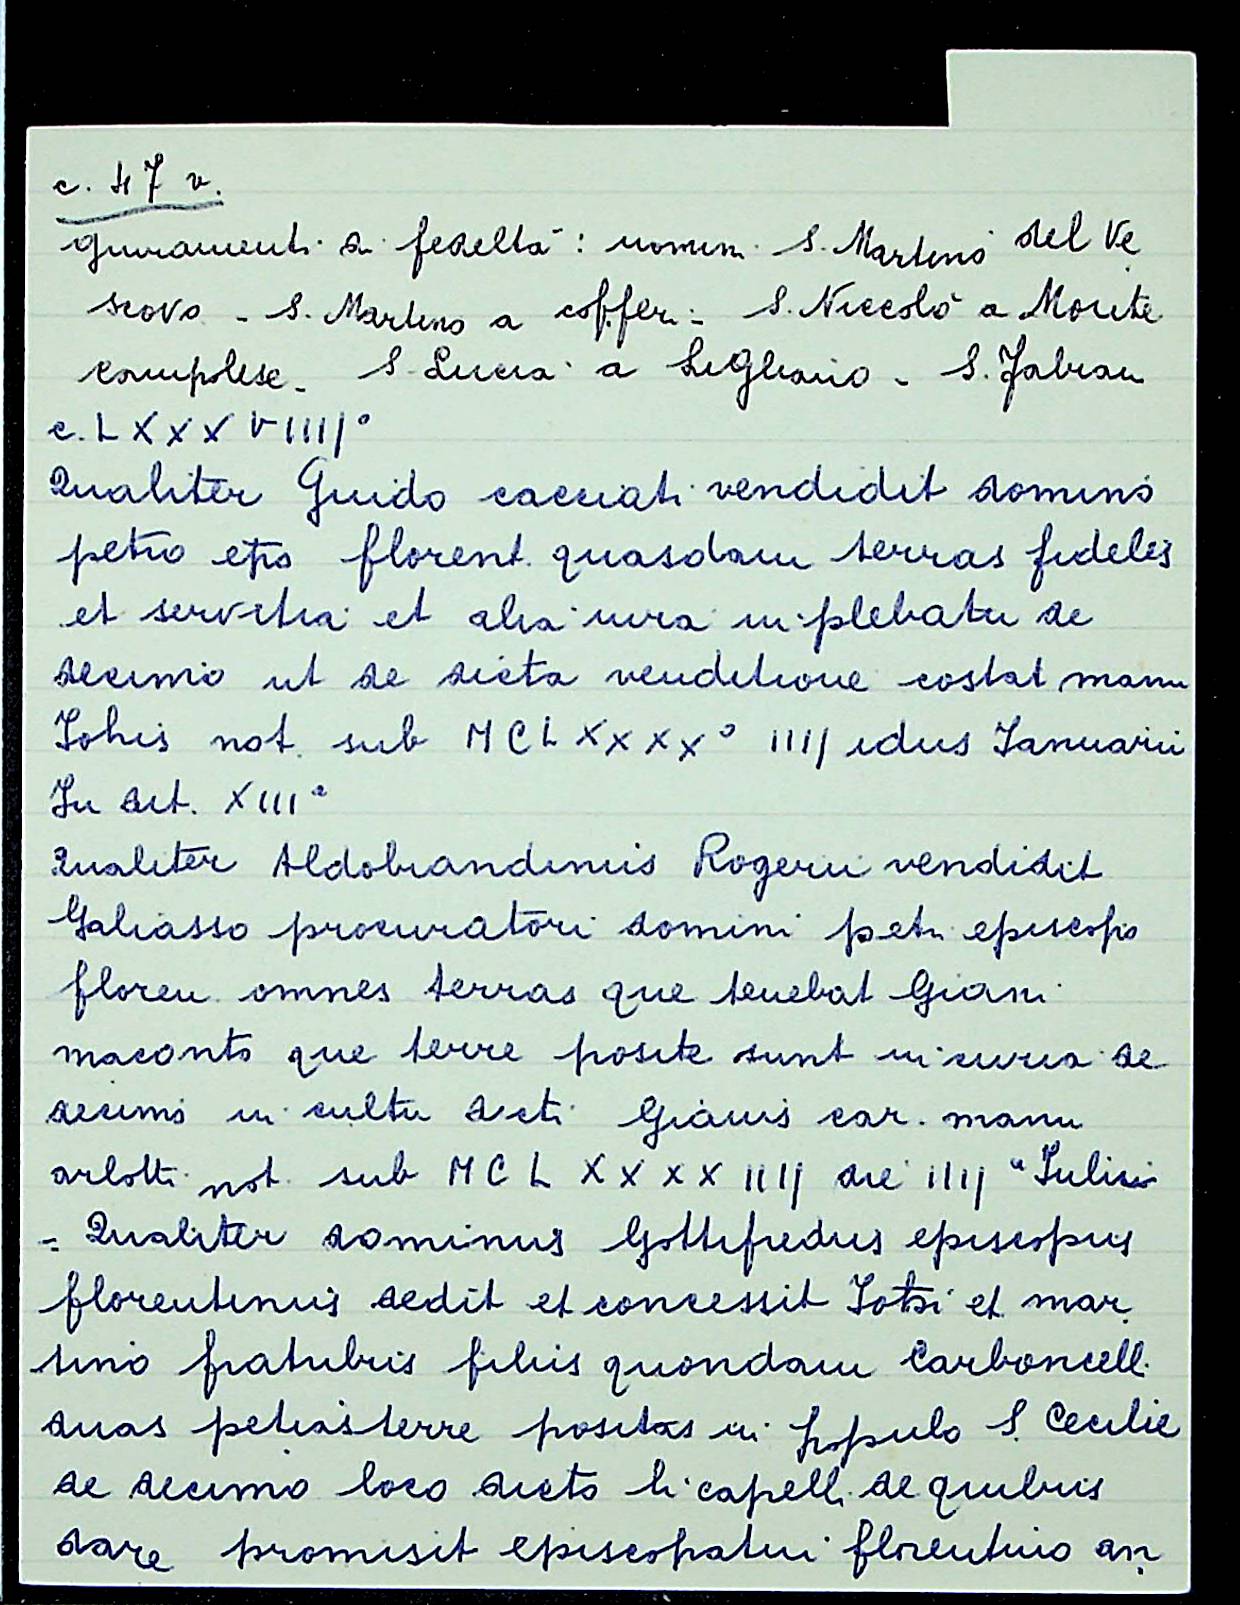 c. 47 v.
giuramenti di fedeltà: nomin. S. Martino del Ve
scovo - S. Martino a coffer. - S. Niccolò a Monte
campolese - S. Lucia a Ligliano - S. Fabian
c. LXXXVIIIJ°
Qualiter Guido cacciati vendidit domino
petro epo florent. quasdam terras fideles
et servitia et alia iura in plebatu de
decimo ut de dicta venditione costat manu
Iohis not. sub MCLXXXX° IIIJ idus Ianuarii
In dit. XIIIª
Qualiter Aldobrandinus Rogerii vendidit
Galiasso procuratori domini petri episcopo
floren. omnes terras que tenebat Giani
maconto que terre posite sunt in curia de
decimo in cultu dicti Gianis car. manu
arlotti not. sub MCLXXXXIIIJ die IIIJª Iulii
- Qualiter dominus Gottifredus episcopus
florentinus dedit et concessit Iotti et mar
tino fratribus filiis quondam Carboncelli
duas petias terre positas in populo S. Cecilie
de decimo loco dicto li capelli de quibus
dare promisit episcopatui florentino an